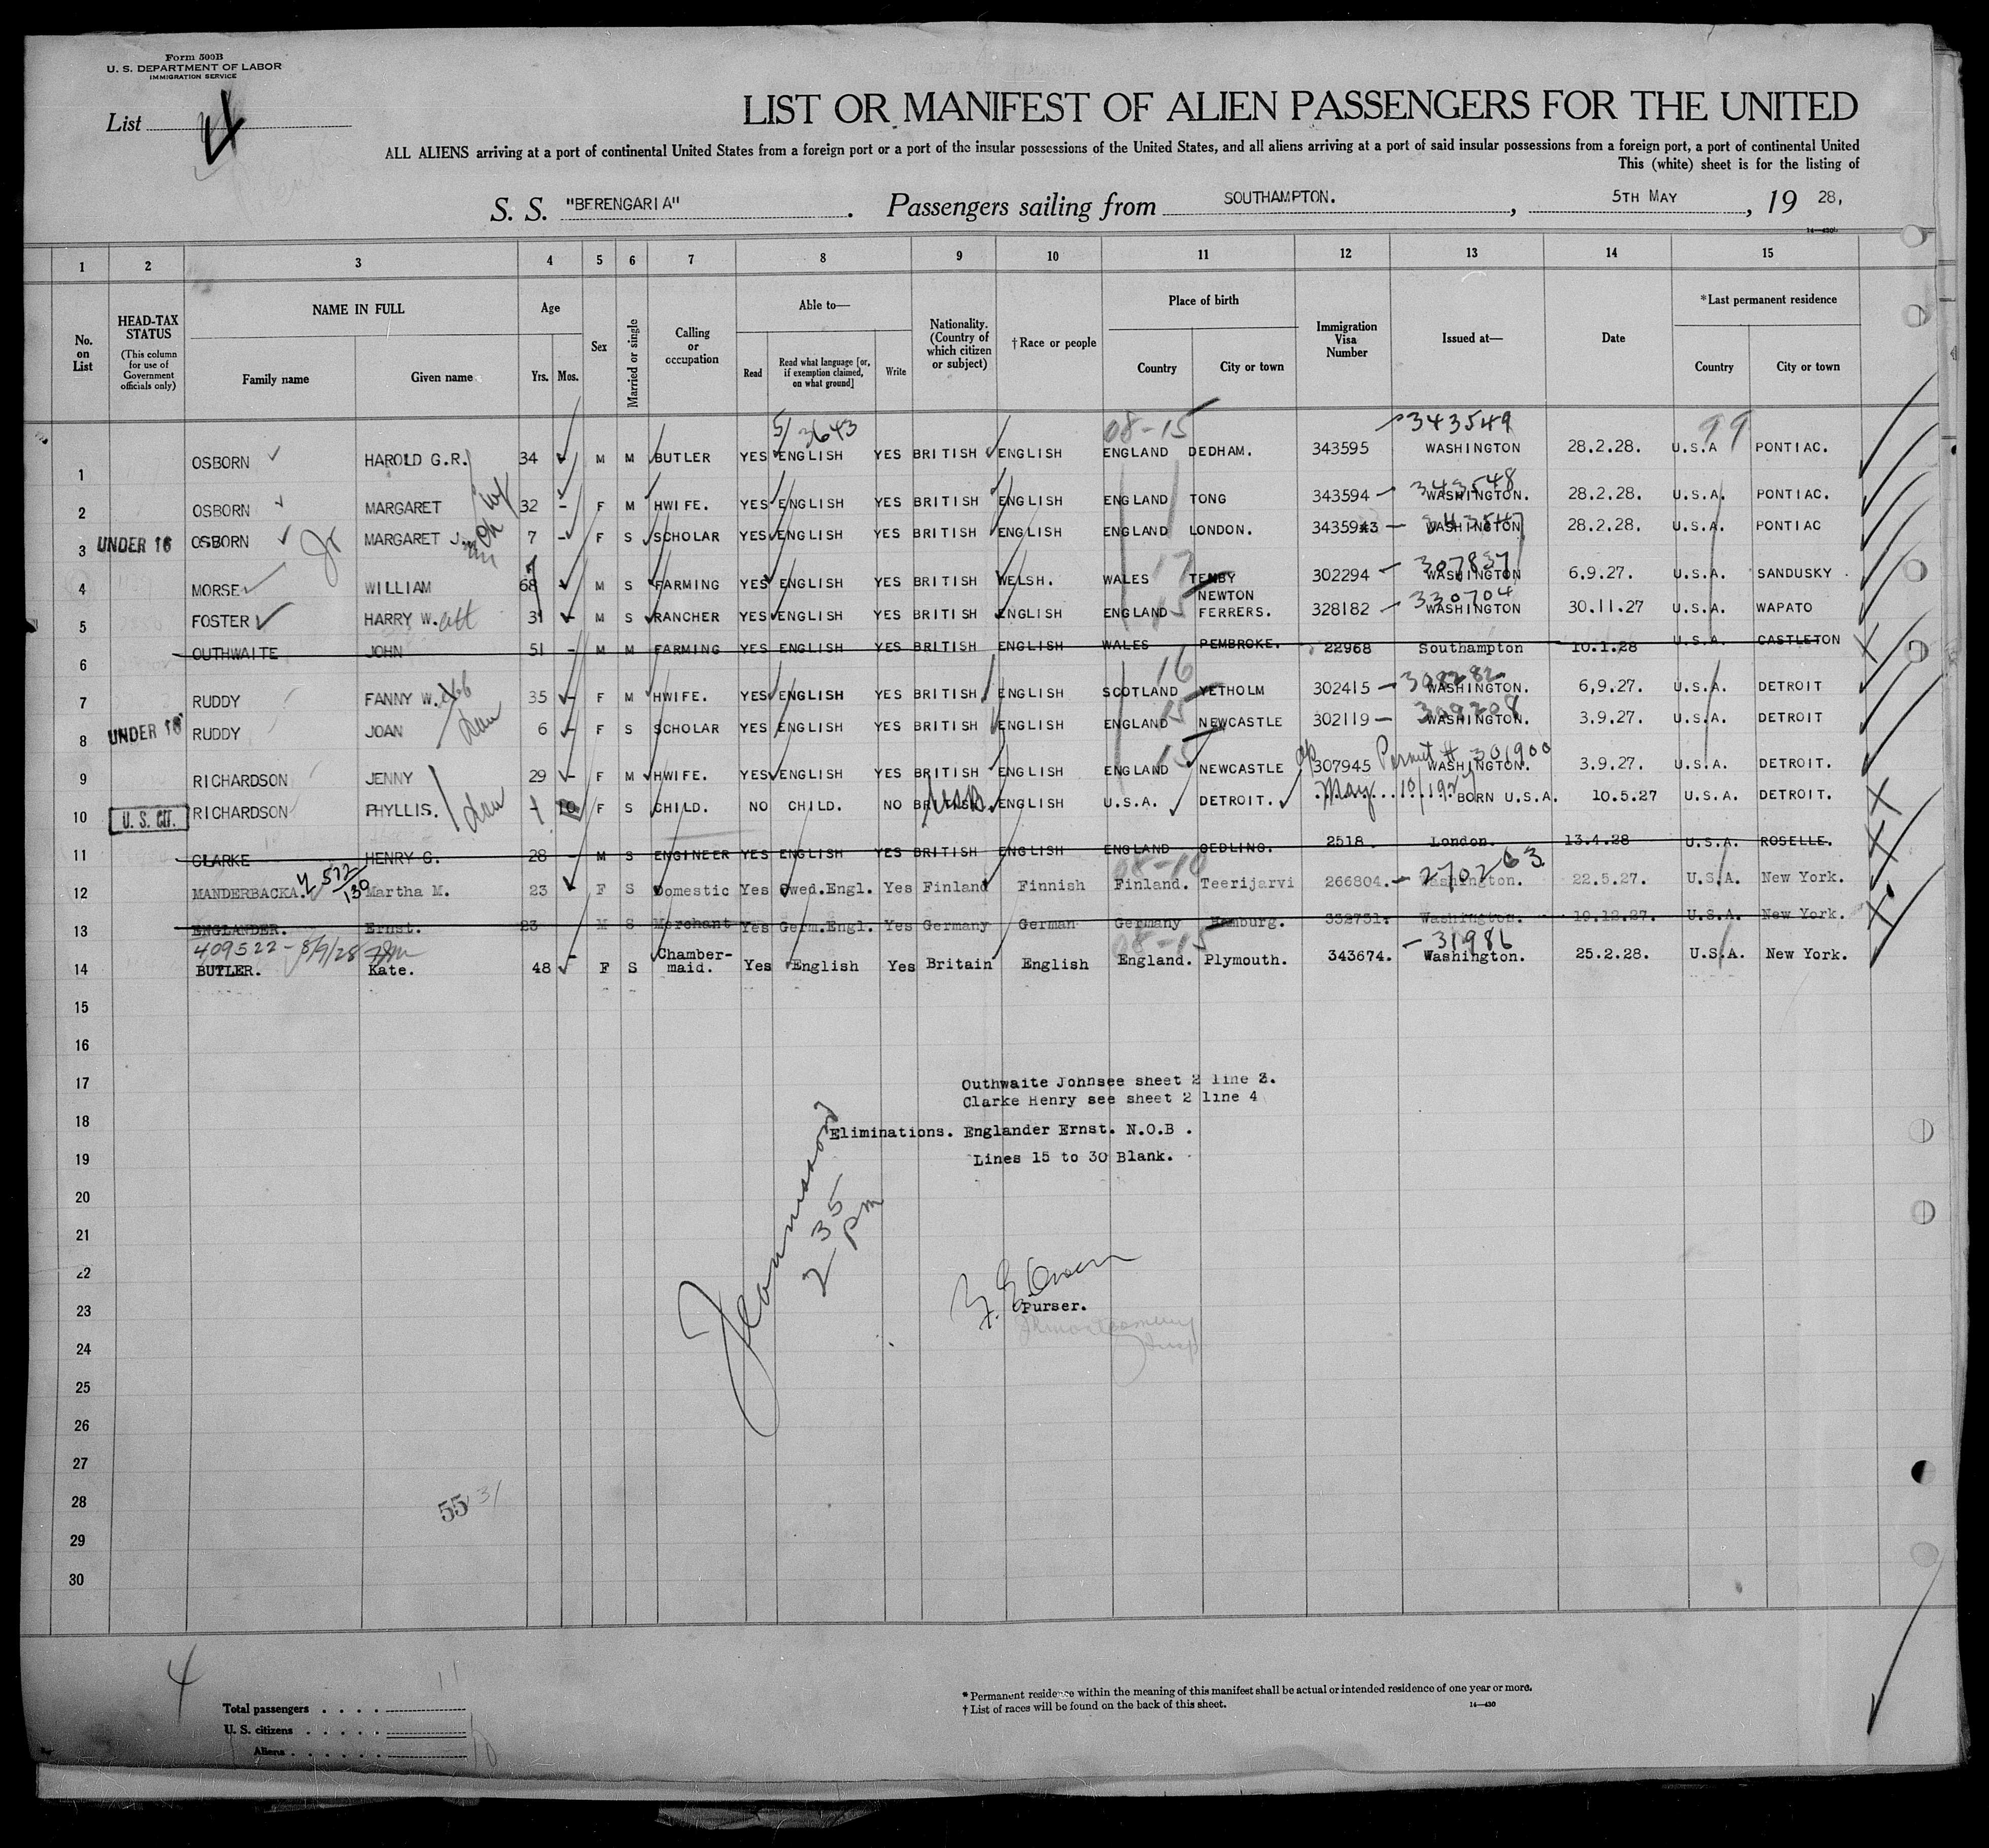 Form 500B
U. S. DEPARTMENT OF LABOR
IMMIGRATION SERVICE
List 4
LIST OR MANIFEST OF ALIEN PASSENGERS FOR THE UNITED
ALL ALIENS arriving at a port of continental United States from a foreign port or a port of the insular possessions of the United States, and all aliens arriving at a port of said insular possessions from a foreign port, a port of continental United
This (white) sheet is for the listing of
S. S. "BERENGARIA" . Passengers sailing from SOUTHAMPTON. , 5TH MAY , 19 28,
1 2 3 4 5 6 7 8 9 10 11 12 13 14 15
No. on List
HEAD-TAX STATUS
(This column for use of Government officials only)
NAME IN FULL
Family name Given name
Age
Yrs. Mos.
Sex
Married or single
Calling or occupation
Able to—
Read Read what language [or, if exemption claimed, on what ground] Write
Nationality. (Country of which citizen or subject)
†Race or people
Place of birth
Country City or town
Immigration Visa Number
Issued at—
Date
*Last permanent residence
Country City or town
5/3643 08-15 343549 99
1 OSBORN HAROLD G.R. 34 M M BUTLER YES ENGLISH YES BRITISH ENGLISH ENGLAND DEDHAM. 343595 WASHINGTON 28.2.28. U.S.A PONTIAC.
343548
2 OSBORN MARGARET 32 - F M HWIFE. YES ENGLISH YES BRITISH ENGLISH ENGLAND TONG 343594 WASHINGTON. 28.2.28. U.S.A. PONTIAC.
3 UNDER 16 OSBORN MARGARET J. 7 - F S SCHOLAR YES ENGLISH YES BRITISH ENGLISH ENGLAND LONDON. WASHINGTON 28.2.28. U.S.A. PONTIAC
17 307837
4 MORSE WILLIAM 68 M S FARMING YES ENGLISH YES BRITISH WELSH. WALES TENBY 302294 WASHINGTON 6.9.27. U.S.A. SANDUSKY .
15 330704
5 FOSTER HARRY W. 31 - M S RANCHER YES ENGLISH YES BRITISH ENGLISH ENGLAND NEWTON FERRERS. 328182 WASHINGTON 30.11.27 U.S.A. WAPATO
6 OUTHWAITE JOHN 51 - M M FARMING YES ENGLISH YES BRITISH ENGLISH WALES PEMBROKE. 22968 Southampton 10.1.28 U.S.A. CASTLETON
16 308282
7 RUDDY FANNY W. 35 - F M HWIFE. YES ENGLISH YES BRITISH ENGLISH SCOTLAND YETHOLM 302415 WASHINGTON. 6,9.27. U.S.A. DETROIT
15
8 UNDER 16 RUDDY JOAN 6 - F S SCHOLAR YES ENGLISH YES BRITISH ENGLISH ENGLAND NEWCASTLE 302119 WASHINGTON. 3.9.27. U.S.A. DETROIT
15 Permit # 301900
9 RICHARDSON JENNY 29 - F M HWIFE. YES ENGLISH YES BRITISH ENGLISH ENGLAND NEWCASTLE 307945 WASHINGTON. 3.9.27. U.S.A. DETROIT.
10 U. S. CIT. RICHARDSON PHYLLIS. 10 F S CHILD. NO CHILD. NO BRITISH. ENGLISH U.S.A. DETROIT. May 10, 1927 BORN U.S.A. 10.5.27 U.S.A. DETROIT.
11 CLARKE HENRY G. 28 - M S ENGINEER YES ENGLISH YES BRITISH ENGLISH ENGLAND GEDLING. 2518 London. 13.4.28 U.S.A. ROSELLE.
08-10 270263
12 MANDERBACKA. Martha M. 23 F S Domestic Yes Swed.Engl. Yes Finland Finnish Finland. Teerijarvi 266804. Washington. 22.5.27. U.S.A. New York.
13 ENGLANDER. Ernst. 23 M S Merchant Yes Germ.Engl. Yes Germany German Germany Hamburg. 332731. Washington. 19.12.27. U.S.A. New York.
409522 - 8/9/28 08-15 31986
14 BUTLER. Kate. 48 - F S Chamber-maid. Yes English Yes Britain English England. Plymouth. 343674. Washington. 25.2.28. U.S.A. New York.
15
16
17
Outhwaite Johnsee sheet 2 line 3.
Clarke Henry see sheet 2 line 4
18
Eliminations. Englander Ernst. N.O.B .
19
Lines 15 to 30 Blank.
20
2 35 pm
21
22
23
Purser.
24
25
26
27
28
55 31
29
30
4
11
Total passengers . . . .
U. S. citizens . . . . .
Aliens . . . . . . 10
* Permanent residence within the meaning of this manifest shall be actual or intended residence of one year or more.
† List of races will be found on the back of this sheet.
14—430